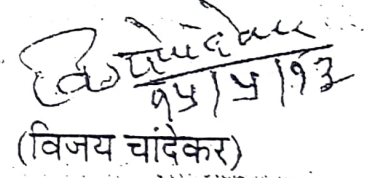 १५/५/१३
(विजय चांदेकर)